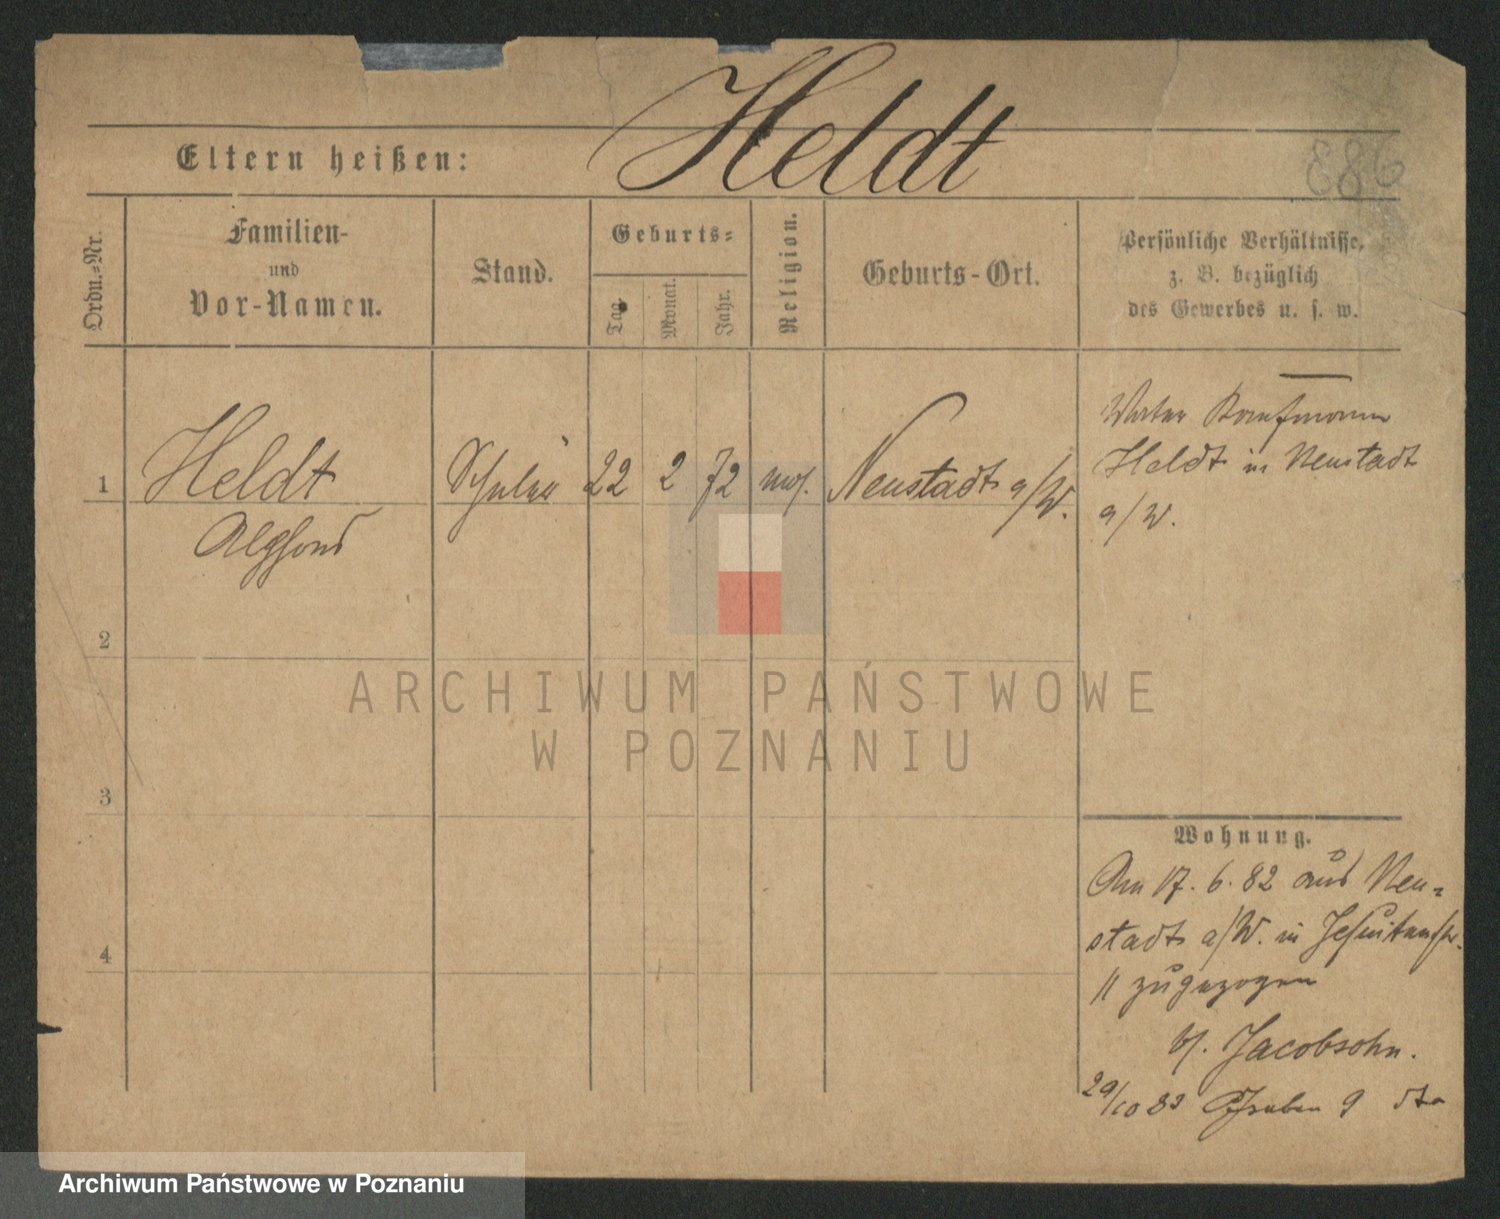 Heldt
Eltern heißen:
886
Ordn.-Nr.
Familien-
und
Vor-Namen.
Stand.
Geburts-
Tag.
Monat.
Jahr.
Religion.
Geburts-Ort.
Persönliche Verhältnisse,
z. B. bezüglich
des Gewerbes u. s. w.
1 Heldt Schüler 22 2 72 mos. Neustadt a/W.
Vater Kaufmann
Heldt in Neustadt
a/W.
2
3
4
Wohnung.
Am 17. 6. 82 aus Neu-
stadt a/W. in Jesuitenstr.
11 zugezogen
b/. Jacobsohn.
29/10 83 Graben 9 dto
ARCHIWUM PAŃSTWOWE
W POZNANIU
Archiwum Państwowe w Poznaniu